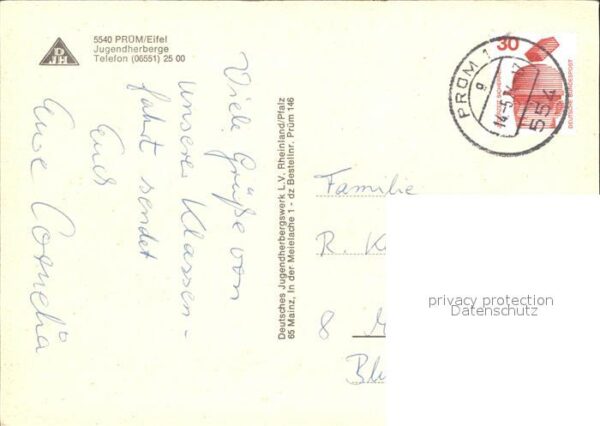 DJH
5540 PRÜM/Eifel
Jugendherberge
Telefon (06551) 25 00
Viele Grüße von
unserer Klassen-
fahrt sendet
Euch
Eure Cornelia
Deutsches Jugendherbergswerk L.V. Rheinland/Pfalz
65 Mainz, In der Meielache 1 - dz Bestellnr. Prüm 146
30
DEUTSCHE BUNDESPOST
PRÜM 1
g
554
Familie
R. K
8 M
privacy protection
Datenschutz